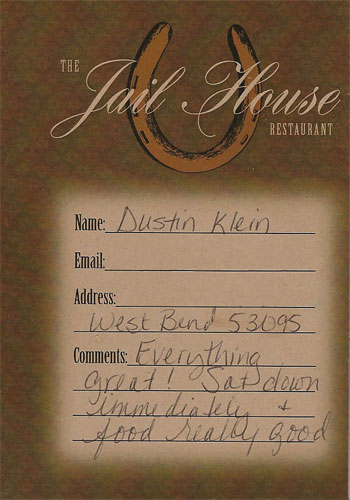 THE
Jail House
RESTAURANT
Name: Dustin Klein
Email:
Address:
West Bend 53095
Comments: Everything
great! Sat down
immediately +
food really good